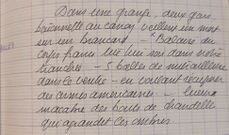 Dans une grange, deux gars
baïonnette au canon veillent un mort
sur une brancard - "Balcon du
corps franc tué hier soir dans notre
tranchée - 5 balles de mitrailleuse
dans le ventre - en voulant récupérer
des armes américaines - lueur
macabre des bouts de chandelle
qui agrandit les ombres